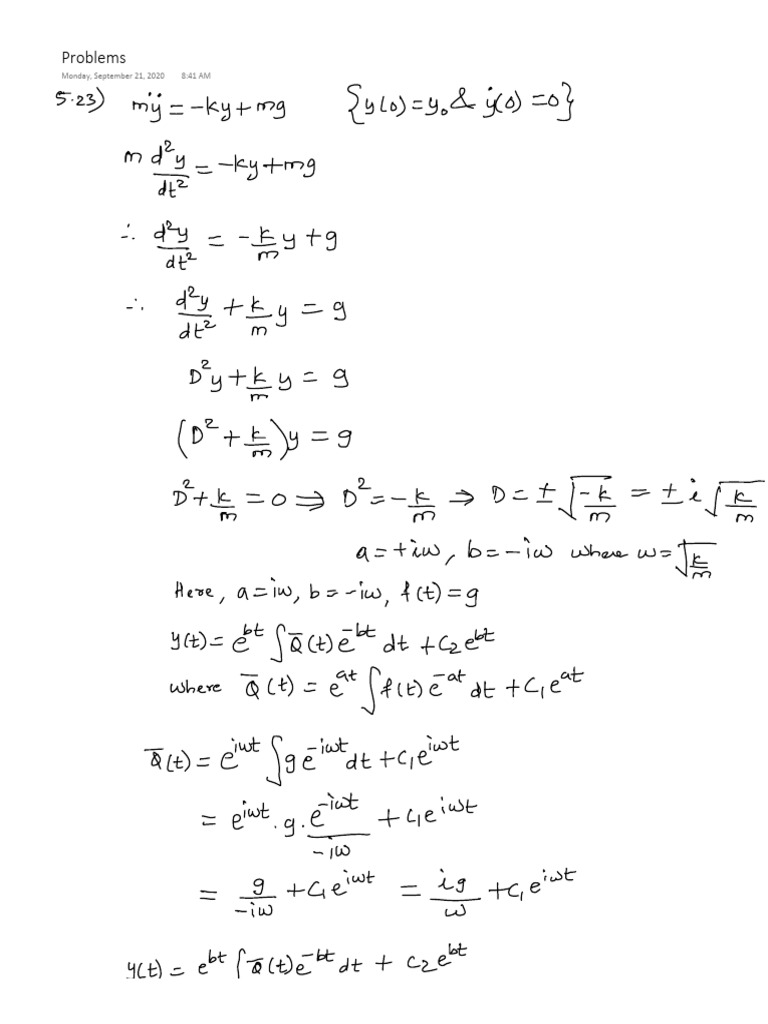 Problems
Monday, September 21, 2020 8:41 AM
5.23) mÿ = -ky + mg {y(0) = y₀ & ẏ(0) = 0}
m d²y/dt² = -ky + mg
∴ d²y/dt² = -k/m y + g
∴ d²y/dt² + k/m y = g
D²y + k/m y = g
(D² + k/m)y = g
D² + k/m = 0 ⇒ D² = -k/m → D = ±√(-k/m) = ±i√(k/m)
a = +iω, b = -iω where ω = √(k/m)
Here, a = iω, b = -iω, f(t) = g
y(t) = e^{bt} ∫Q̄(t) e^{-bt} dt + C₂e^{bt}
where Q̄(t) = e^{at} ∫f(t) e^{-at} dt + C₁e^{at}
Q̄(t) = e^{iωt} ∫g e^{-iωt} dt + C₁e^{iωt}
= e^{iωt} · g · e^{-iωt}/-iω + C₁e^{iωt}
= g/-iω + C₁e^{iωt} = ig/ω + C₁e^{iωt}
y(t) = e^{bt} ∫Q̄(t) e^{-bt} dt + C₂e^{bt}